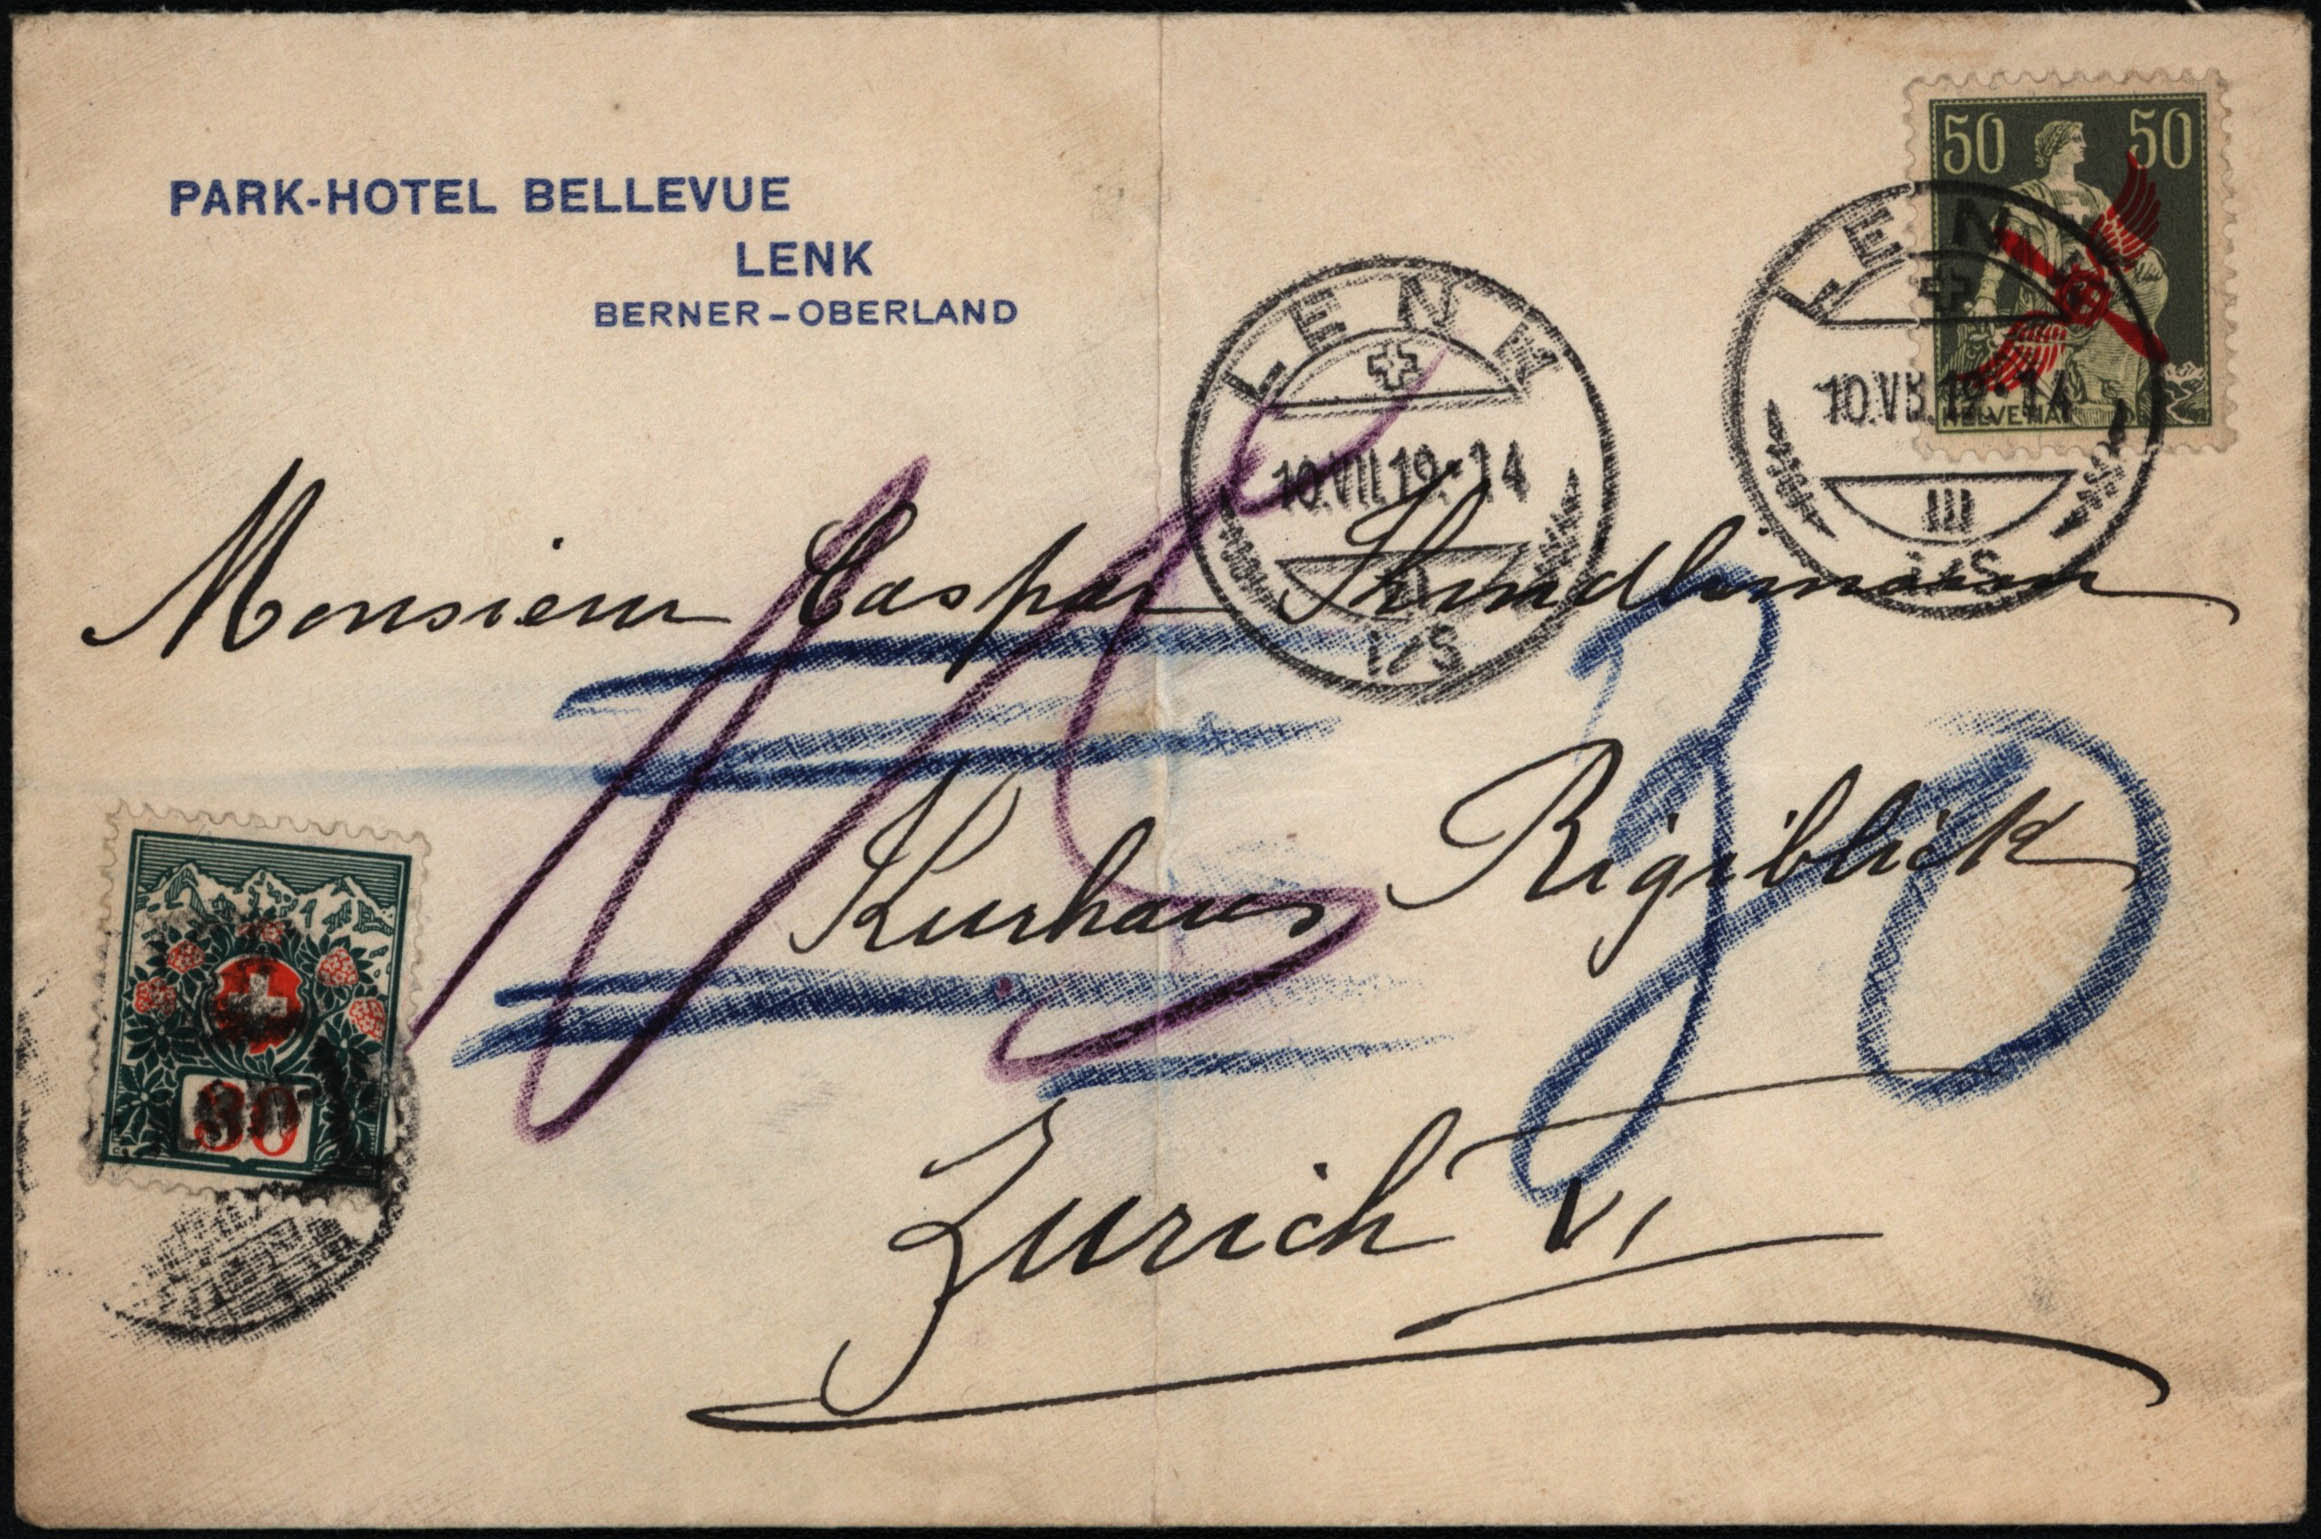 PARK-HOTEL BELLEVUE
LENK
BERNER-OBERLAND
50 50
HELVETIA
LENK
10.VII.19.-14
III
i/S
LENK
10.VII.19.-14
i/S
Monsieur Caspar
Kurhaus Rigiblick
Zurich VI
30
30